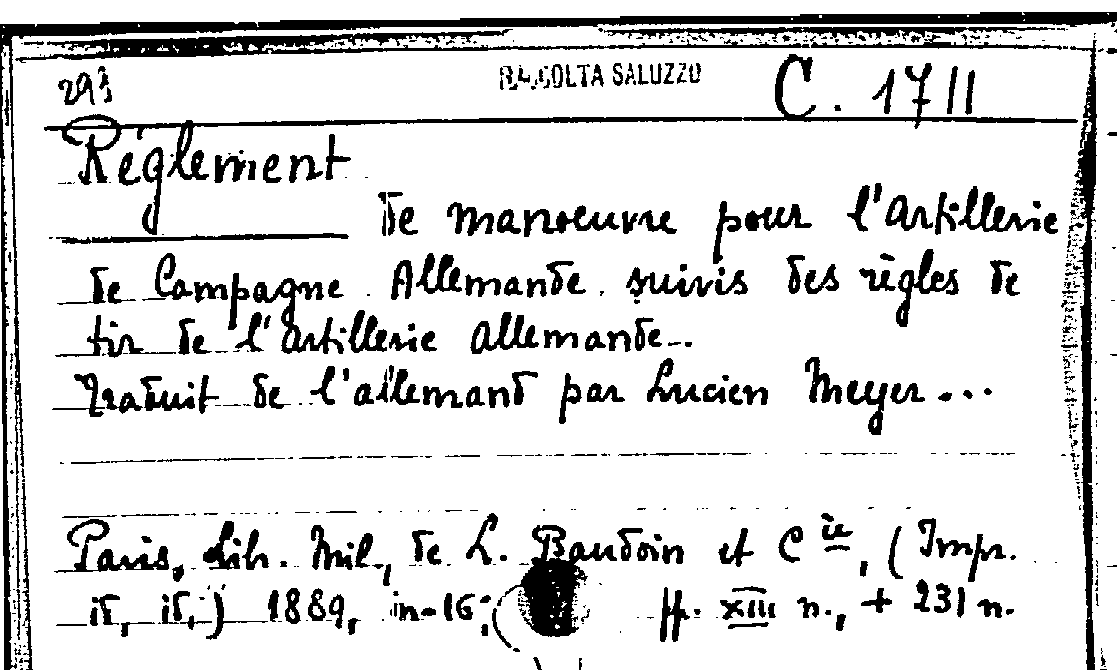 293 RACCOLTA SALUZZO C. 1711
Réglement
de manoeuvre pour l'Artillerie
de Campagne Allemande suivis des règles de
tir de l'artillerie allemande..
Traduit de l'allemand par Lucien Meyer...
Paris, Lib. Mil., de L. Baudoin et C ie, (Impr.
id, id,) 1889, in-16; pp. XIII n., + 231 n.